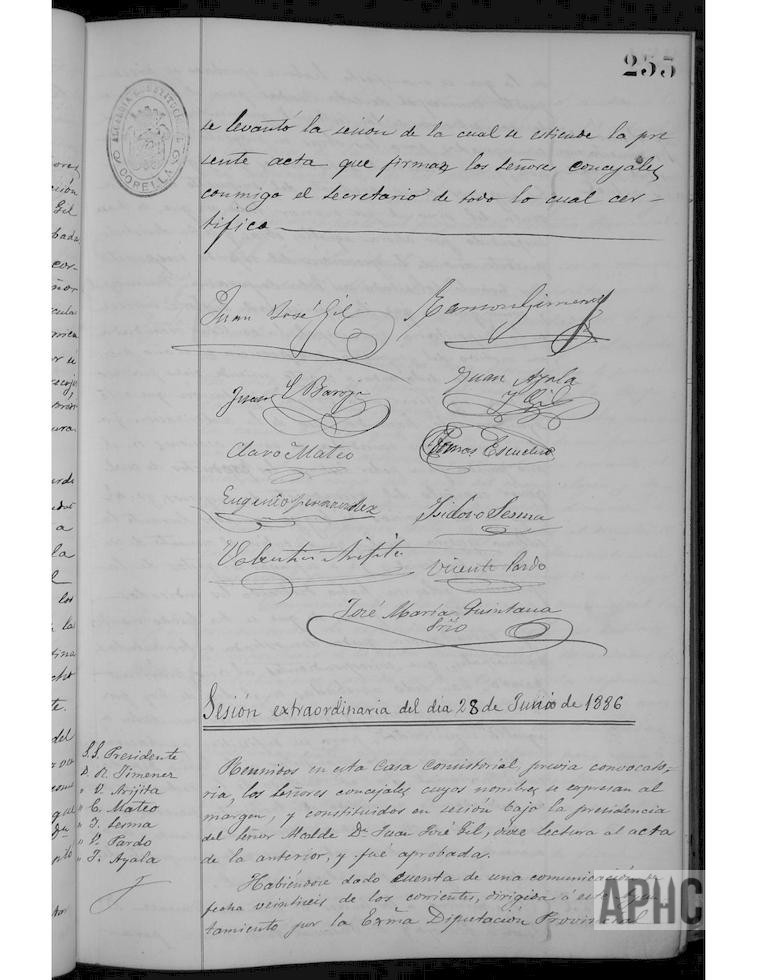 255
ALCALDIA CONSTITUCIONAL
CORELLA
se levantó la sesión de la cual se estiende la pre
sente acta que firman los señores concejales
conmigo el secretario de todo lo cual cer-
tifico
Juan José Gil
Ramon Gimenez
Juan
Juan Ayala
y Gil
Claro Mateo
Tomas Escudero
Eugenio Fernandez
Isidoro Sesma
Valentin Arijita
Vicente Pardo
José María Quintana
Srio
Sesión extraordinaria del dia 28 de Junio de 1886
S.S. Presidente
D. R. Jimenez
" V. Arijita
" C. Mateo
" I. Sesma
" V. Pardo
" J. Ayala
Reunidos en esta Casa Consistorial, previa convocato-
ria, los Señores concejales cuyos nombres se expresan al
margen, y constituidos en sesión bajo la presidencia
del Señor Alcalde Dn Juan José Gil, diose lectura al acta
de la anterior, y fué aprobada.
Habiéndose dado cuenta de una comunicación
fecha veintiseis de los corrientes, dirigida á este Ayun-
tamiento por la Exma Diputación Provincial
APHC